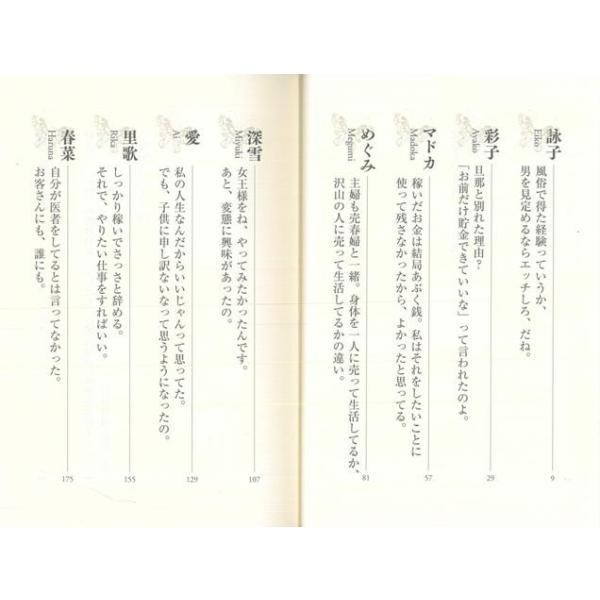 詠子
Eiko
風俗で得た経験っていうか、
男を見定めるならエッチしろ、だね。
9
彩子
Ayako
旦那と別れた理由?
「お前だけ貯金できていいな」って言われたのよ。
29
マドカ
Madoka
稼いだお金は結局あぶく銭。私はそれをしたいことに
使って残さなかったから、よかったと思ってる。
57
めぐみ
Megumi
主婦も売春婦と一緒。身体を一人に売って生活してるか、
沢山の人に売って生活してるかの違い。
81
深雪
Miyuki
女王様をね、やってみたかったんです。
あと、変態に興味があったの。
107
愛
Ai
私の人生なんだからいいじゃんって思ってた。
でも、子供に申し訳ないなって思うようになったの。
129
里歌
Rika
しっかり稼いでさっさと辞める。
それで、やりたい仕事をすればいい。
155
春菜
Haruna
自分が医者をしてるとは言ってなかった。
お客さんにも、誰にも。
175